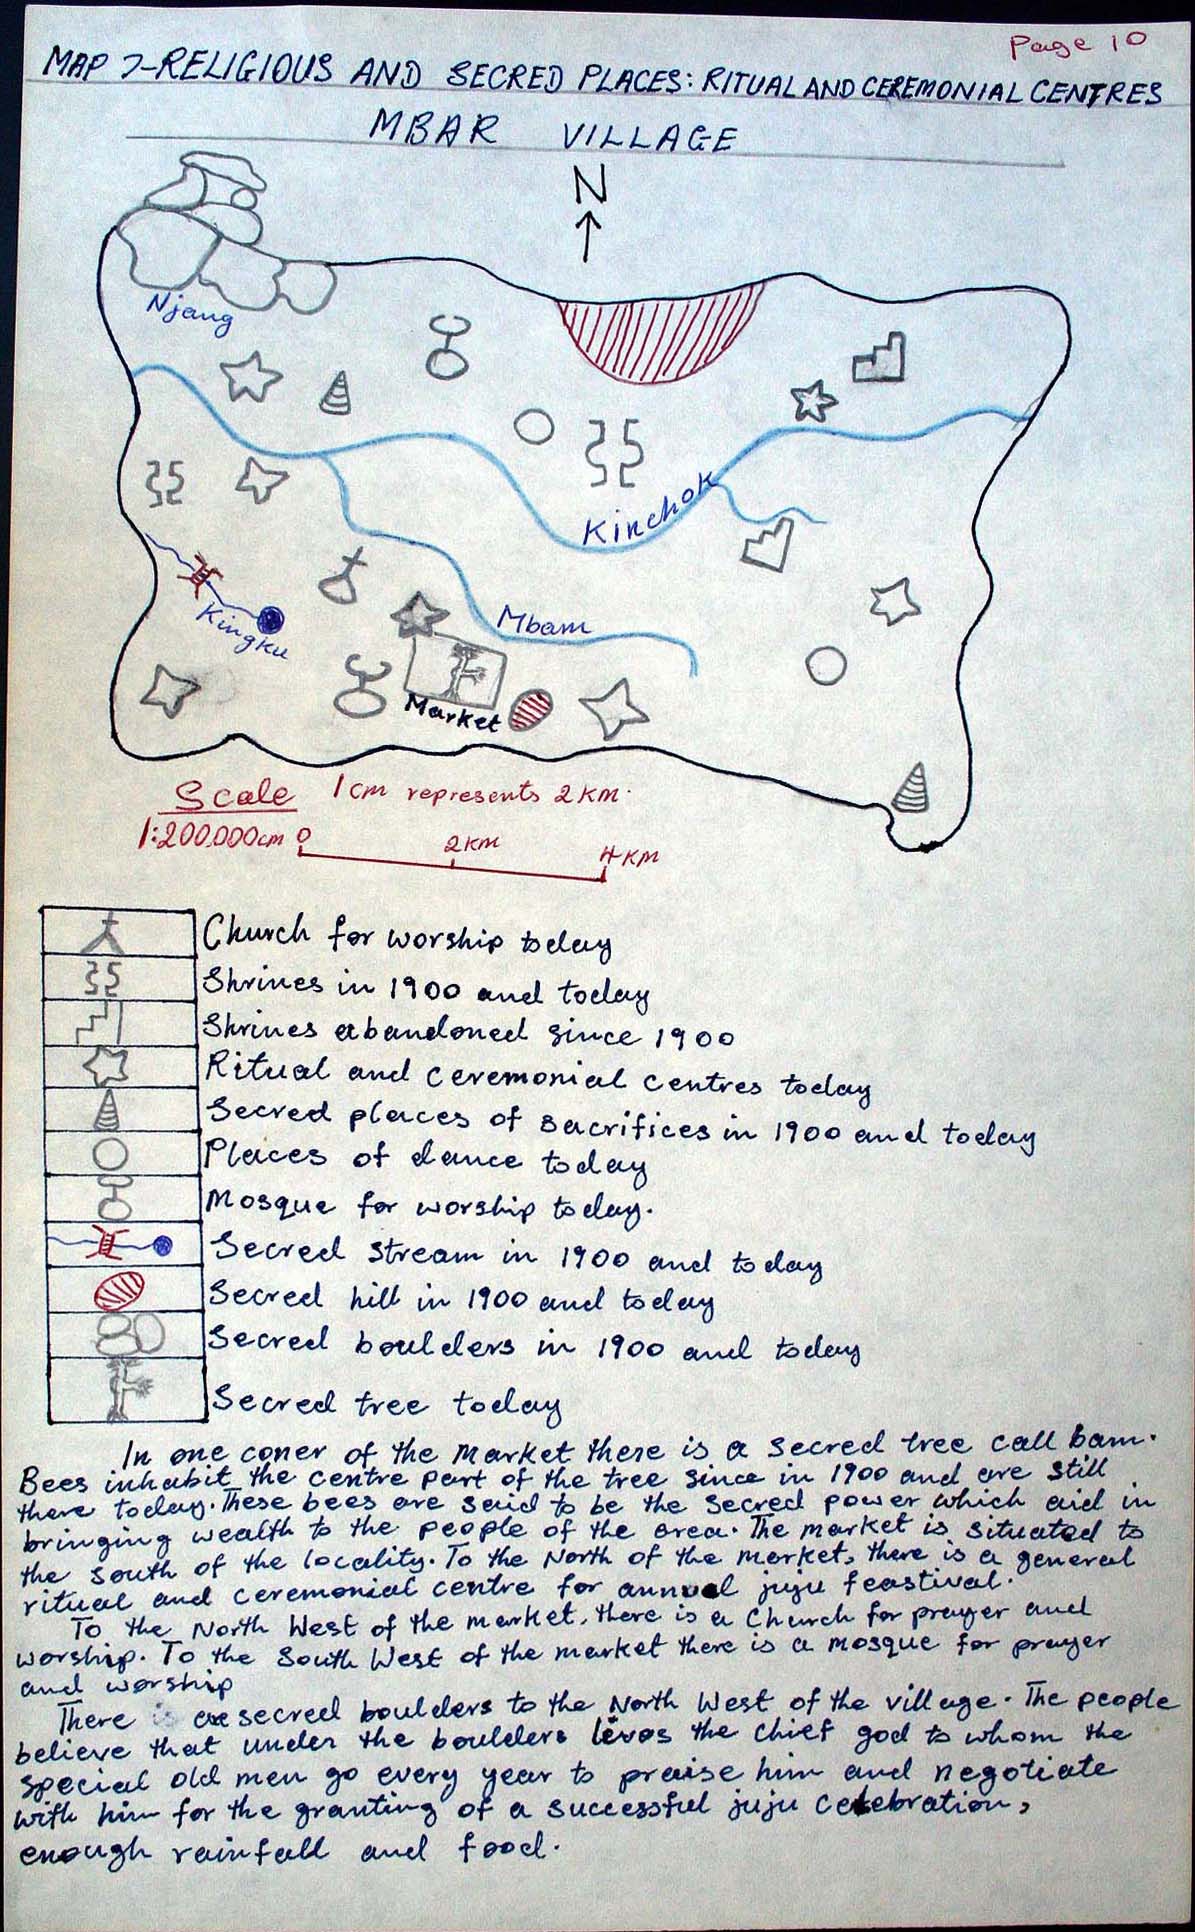 Page 10
MAP 7-RELIGIOUS AND SECRED PLACES: RITUAL AND CEREMONIAL CENTRES
MBAR VILLAGE
N
Njang
Kinchok
Kingku
Mbam
Market
Scale 1cm represents 2KM.
1:200.000cm 0 2KM 4KM
Church for worship today
Shrines in 1900 and today
Shrines abandoned since 1900
Ritual and ceremonial centres today
Secred places of sacrifices in 1900 and today
Places of dance today
Mosque for worship today.
Secred stream in 1900 and today
Secred hill in 1900 and today
Secred boulders in 1900 and today
Secred tree today
In one coner of the market there is a secred tree call bam.
Bees inhabit the centre part of the tree since in 1900 and are still
there today. These bees are said to be the secred power which aid in
bringing wealth to the people of the area. The market is situated to
the south of the locality. To the North of the market, there is a general
ritual and ceremonial centre for annual juju feastival.
To the North West of the market, there is a Church for prayer and
worship. To the South West of the market there is a mosque for prayer
and worship
There are secred boulders to the North West of the village. The people
believe that under the boulders leves the chief god to whom the
special old men go every year to praise him and negotiate
with him for the granting of a successful juju celebration,
enough rainfall and food.